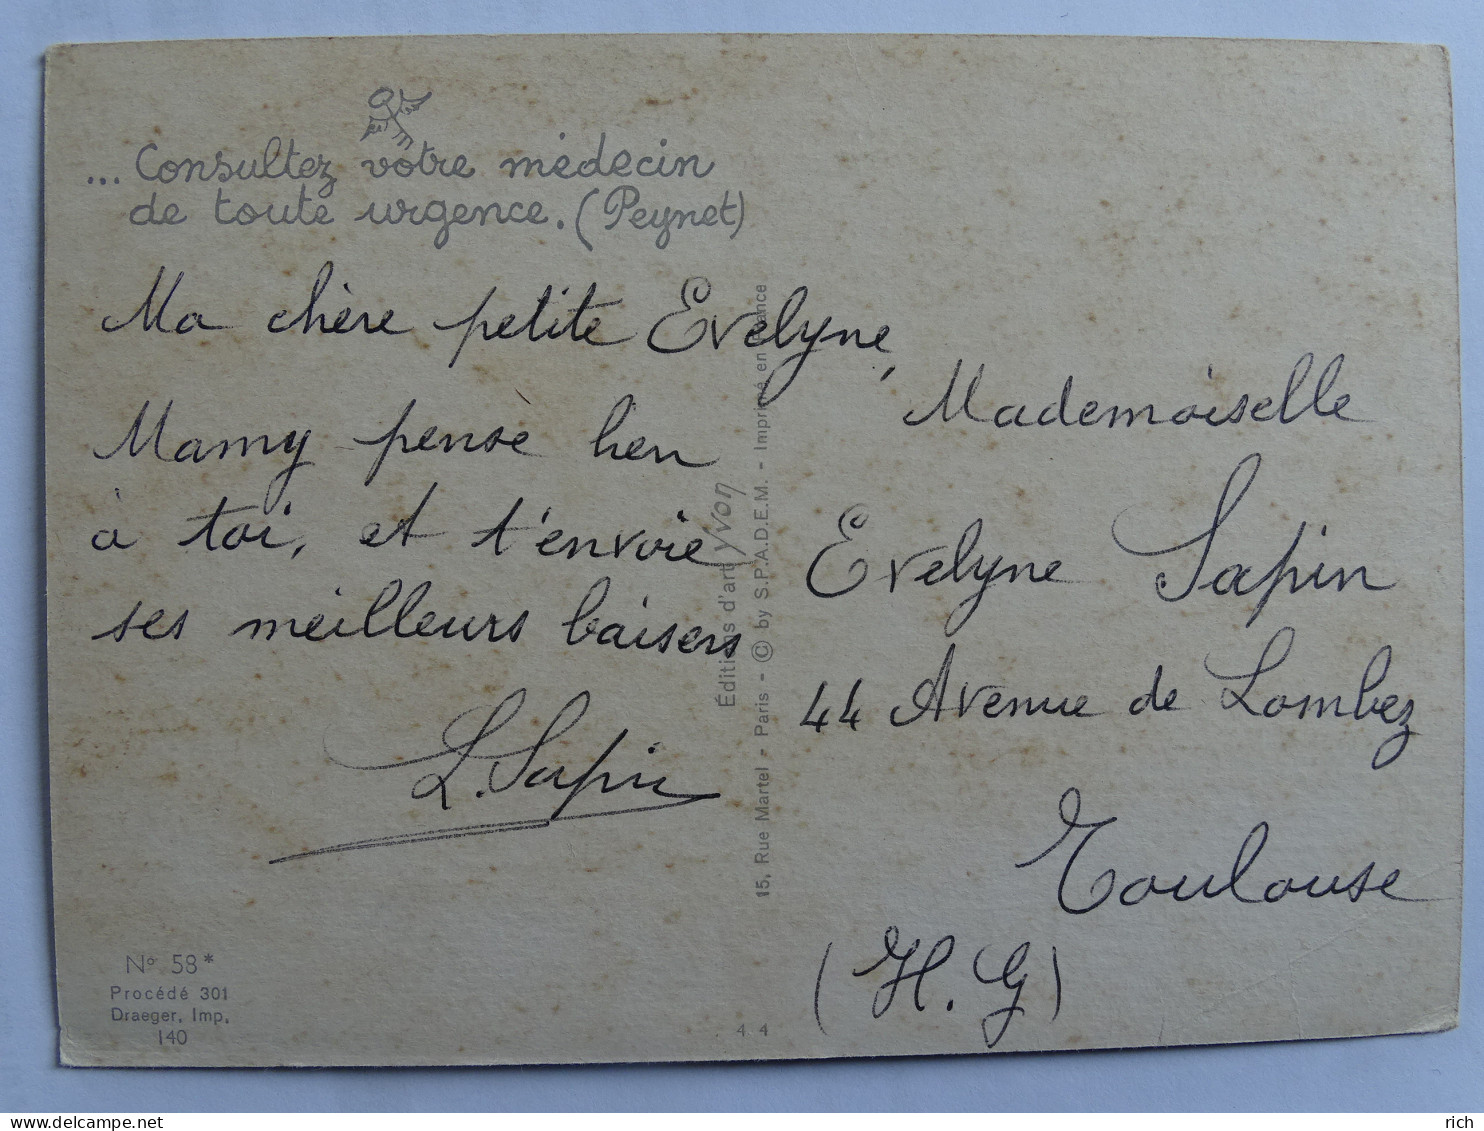 ... Consultez votre médecin
de toute urgence. (Peynet)
Ma chère petite Evelyne,
Mamy pense bien
à toi, et t'envoie
ses meilleurs baisers
L. Sapin
Mademoiselle
Evelyne Sapin
44 Avenue de Lombez
Toulouse
(H. G)
Éditions d'art Yvon
15, Rue Martel - Paris - © by S.P.A.D.E.M. - Imprimé en France
No 58*
Procédé 301
Draeger, Imp.
140
4 4
delcampe.net
rich